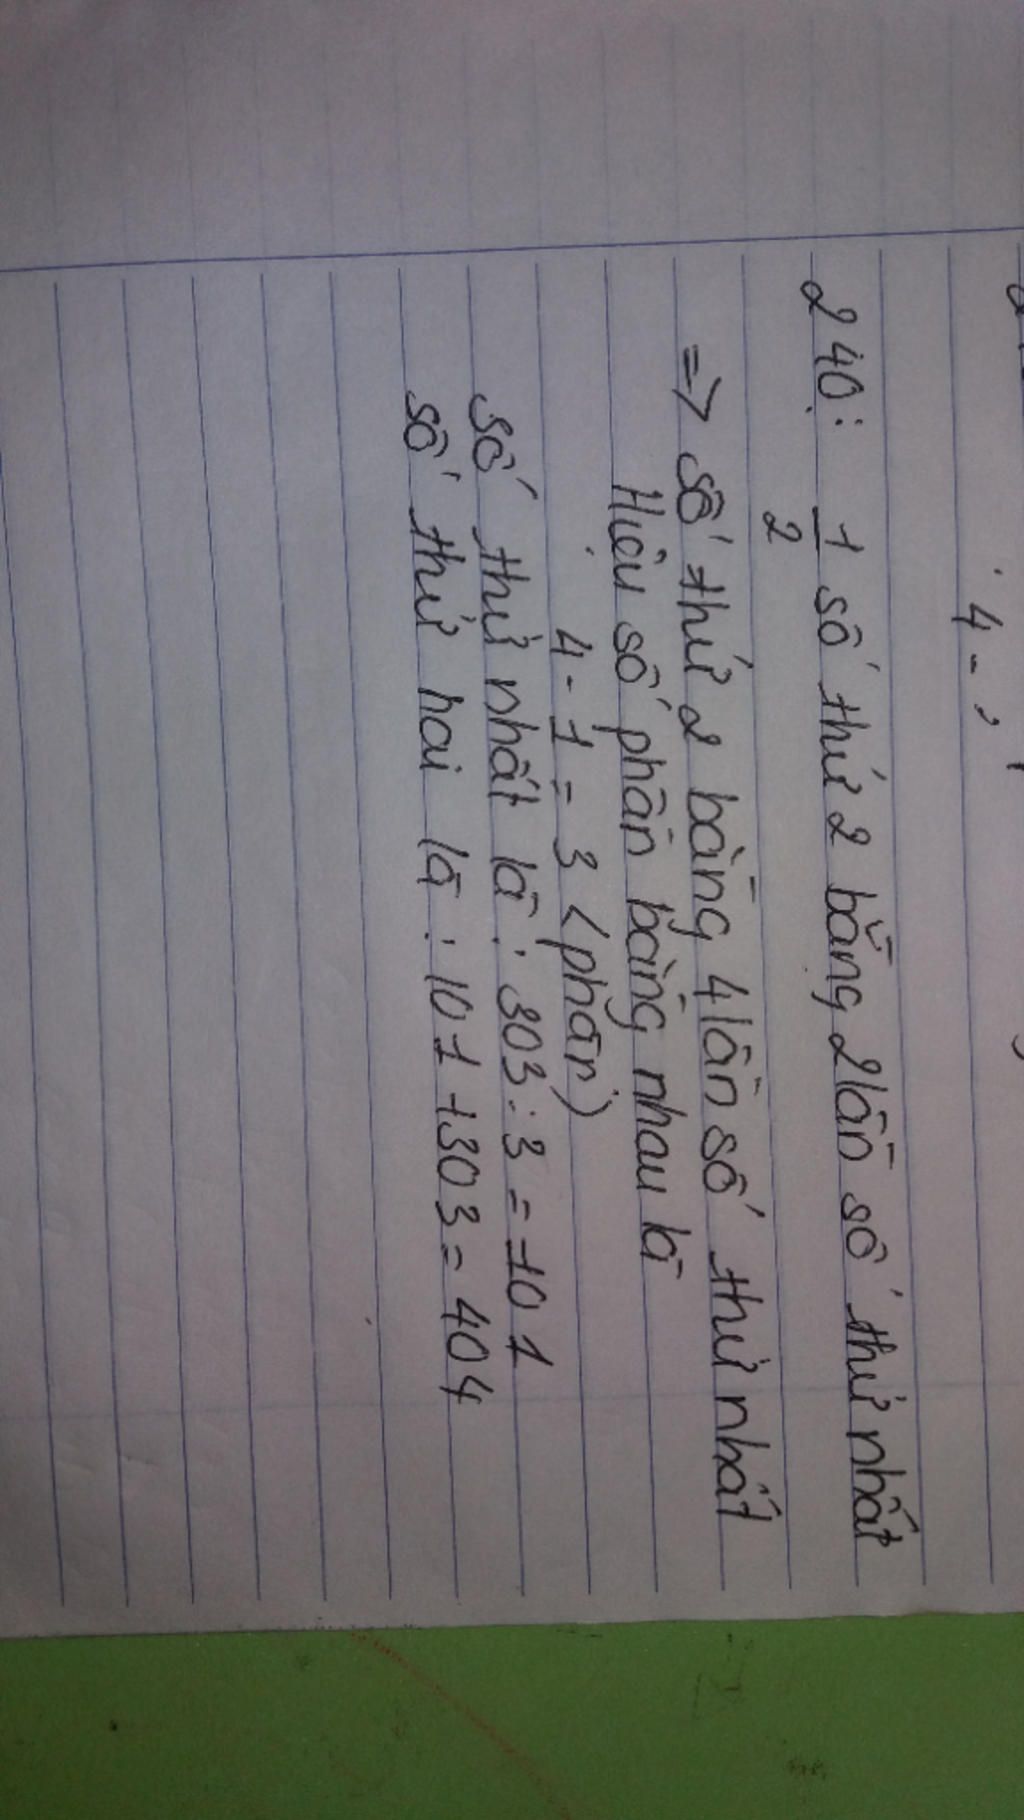 4 -
240: 1/2 số thứ 2 bằng 2 lần số thứ nhất
=> số thứ 2 bằng 4 lần số thứ nhất
Hiệu số phần bằng nhau là
4 - 1 = 3 <phần)
số thứ nhất là : 303 : 3 = 101
số thứ hai là : 101 + 303 = 404